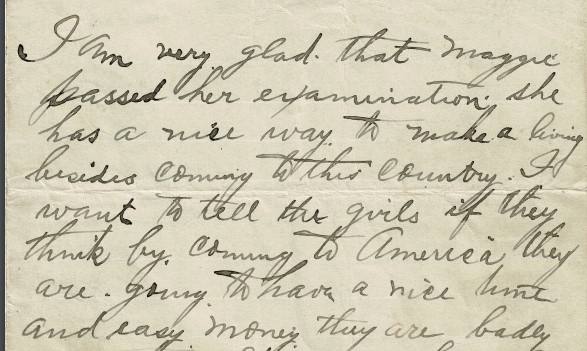 I am very glad. that Maggie
passed her examination. she
has a nice way to make a living
besides coming to this country. I
want to tell the girls if they
think by coming to America they
are. going to have a nice time
and easy money they are badly